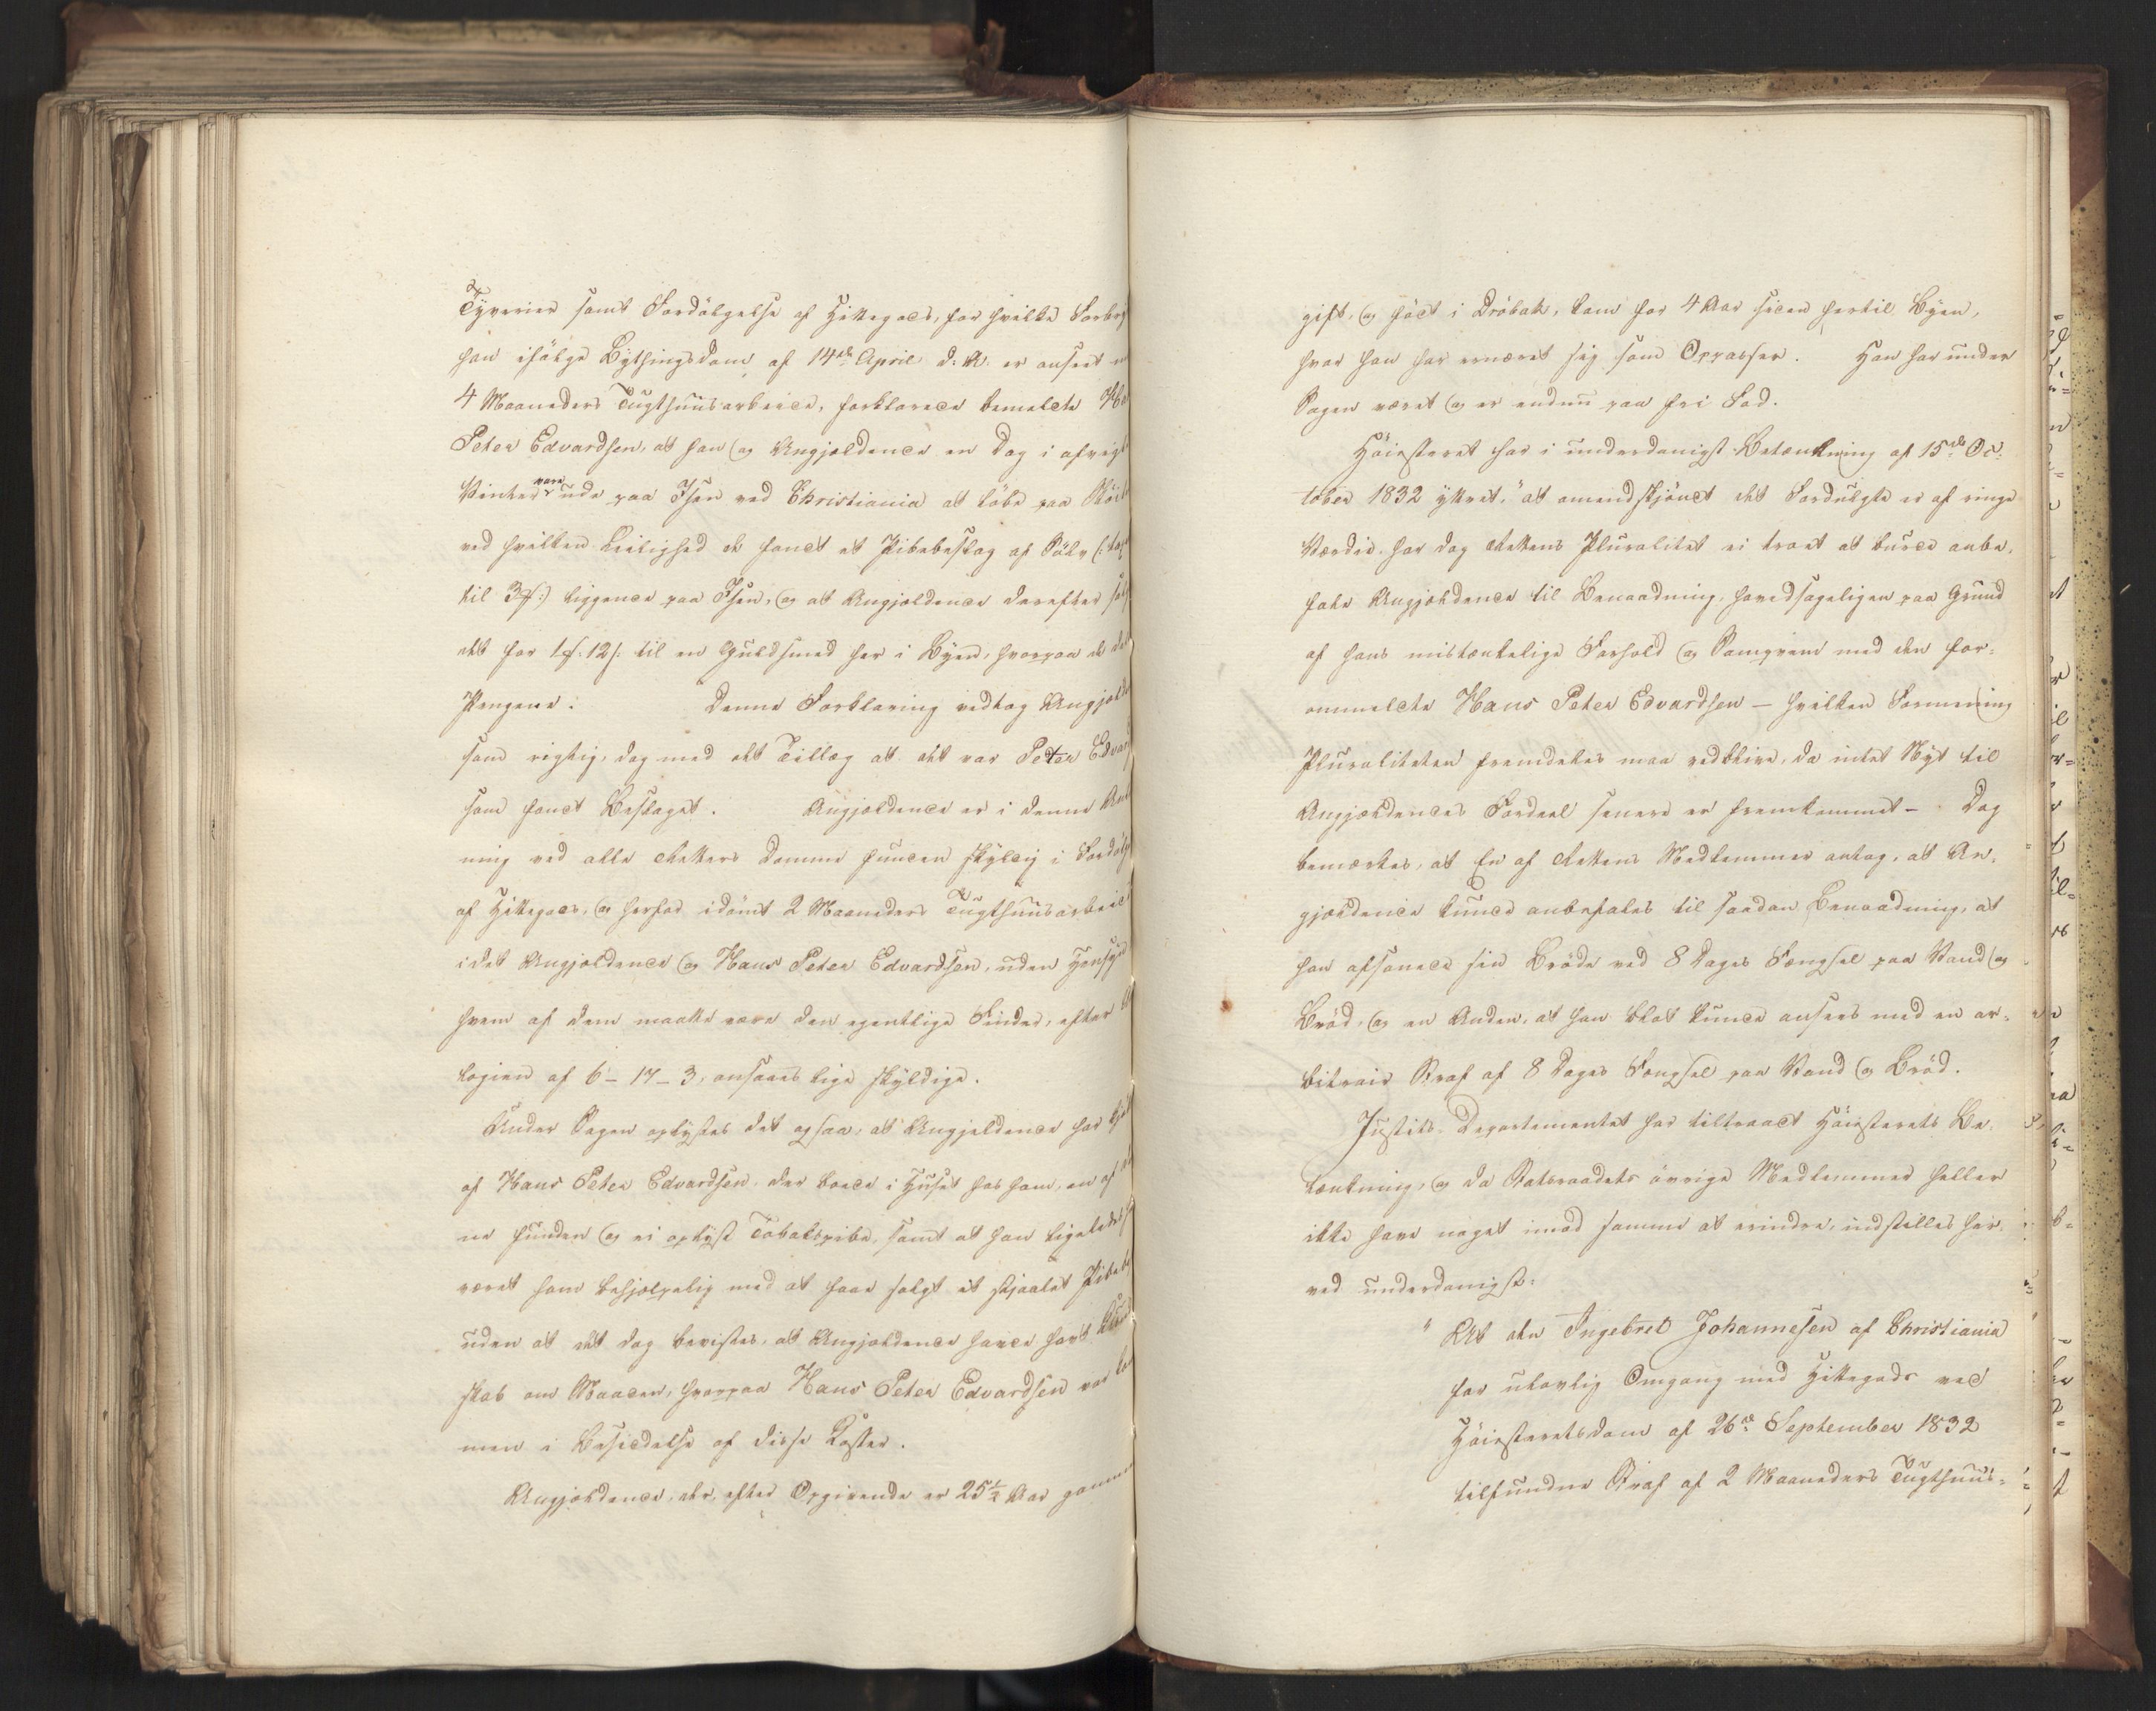 Tyverier samt Fordölgelse af Hittegods, for hvilke
han ifölge Bythingsdom af 14de April d: A. er anseet
4 Maaneders Tugthuusarbeide, forklarede bemeldte
Peter Edvardsen, at han og Angjeldende en Dag i
Vinter vare ude paa Isen ved Christiania at löbe paa
ved hvilken Leilighed de fandt et Pibebeslag af Sölv
til 3) liggende paa Isen, og at Angjeldende derefter
det for 12 til en Guldsmed her i Byen, hvorpaa de
Pengene. Denne Forklaring vedtog
som rigtig, dog med det Tillæg at det var Peter
som fandt Beslaget. Angjeldende er i denne
ning ved alle Retters Domme funden skyldig i
af Hittegods, og herfor idömt 2 Maaneders Tugthuusarbeide
idet Angjeldende og Hans Peter Edvardsen, uden Hensyn
hvem af dem maatte være den egentlige Finder, efter
logien af 6-17-3, ansaaes lige skyldige.
Under Sagen oplystes det ogsaa, at Angjeldende har
af Hans Peter Edvardsen, der boede i Huset hos ham, en af
ne funden og ei oplyst Tobakspibe, samt at han ligeledes
været ham behjelpelig med at faae solgt et stjaalet
uden at det dog bevistes, at Angjeldende havde havt
skab om Maaden, hvorpaa Hans Peter Edvardsen var
men i Besiddelse af disse Koster.
Angjeldende, der efter Opgivende er 25½ Aar
gift, og född i Dröbak, kom for 4 Aar siden hertil Byen,
hvor han har ernæret sig som Oppasser. Han har under
Sagen været og er endnu paa fri Fod.
Höiesteret har i underdanigst Betænkning af 15de Oc-
tober 1832 yttret, "at omendskjöndt det Fordulgte er af ringe
Værdie, har dog Rettens Pluralitet ei troet at burde anbe-
fale Angjeldende til Benaadning, hovedsageligen paa Grund
af hans mistænkelige Forhold og Samqvem med den for-
ommeldte Hans Peter Edvardsen - hvilken Formening
Pluraliteten fremdeles maa vedblive, da intet Nyt til
Angjeldendes Fordeel senere er fremkommet - Dog
bemærkes, at En af Rettens Medlemmer antog, at An-
gjeldende kunde anbefales til saadan Benaadning, at
han afsonede sin Bröde ved 8 Dages Fængsel paa Vand og
Bröd, og en Anden, at han blot kunde ansees med en ar-
bitrair Straf af 8 Dages Fængsel paa Vand og Bröd.
Justits-Departementet har tiltraadt Höiesterets Be-
tænkning, og da Statsraadets övrige Medlemmer heller
ikke have noget imod samme at erindre, indstilles her-
ved underdanigst:
" At den Ingebret Johannesen af Christiania
for ulovlig Omgang med Hittegods ved
Höiesteretsdom af 26de September 1832
tilfundne Straf af 2 Maaneders Tugthuus-